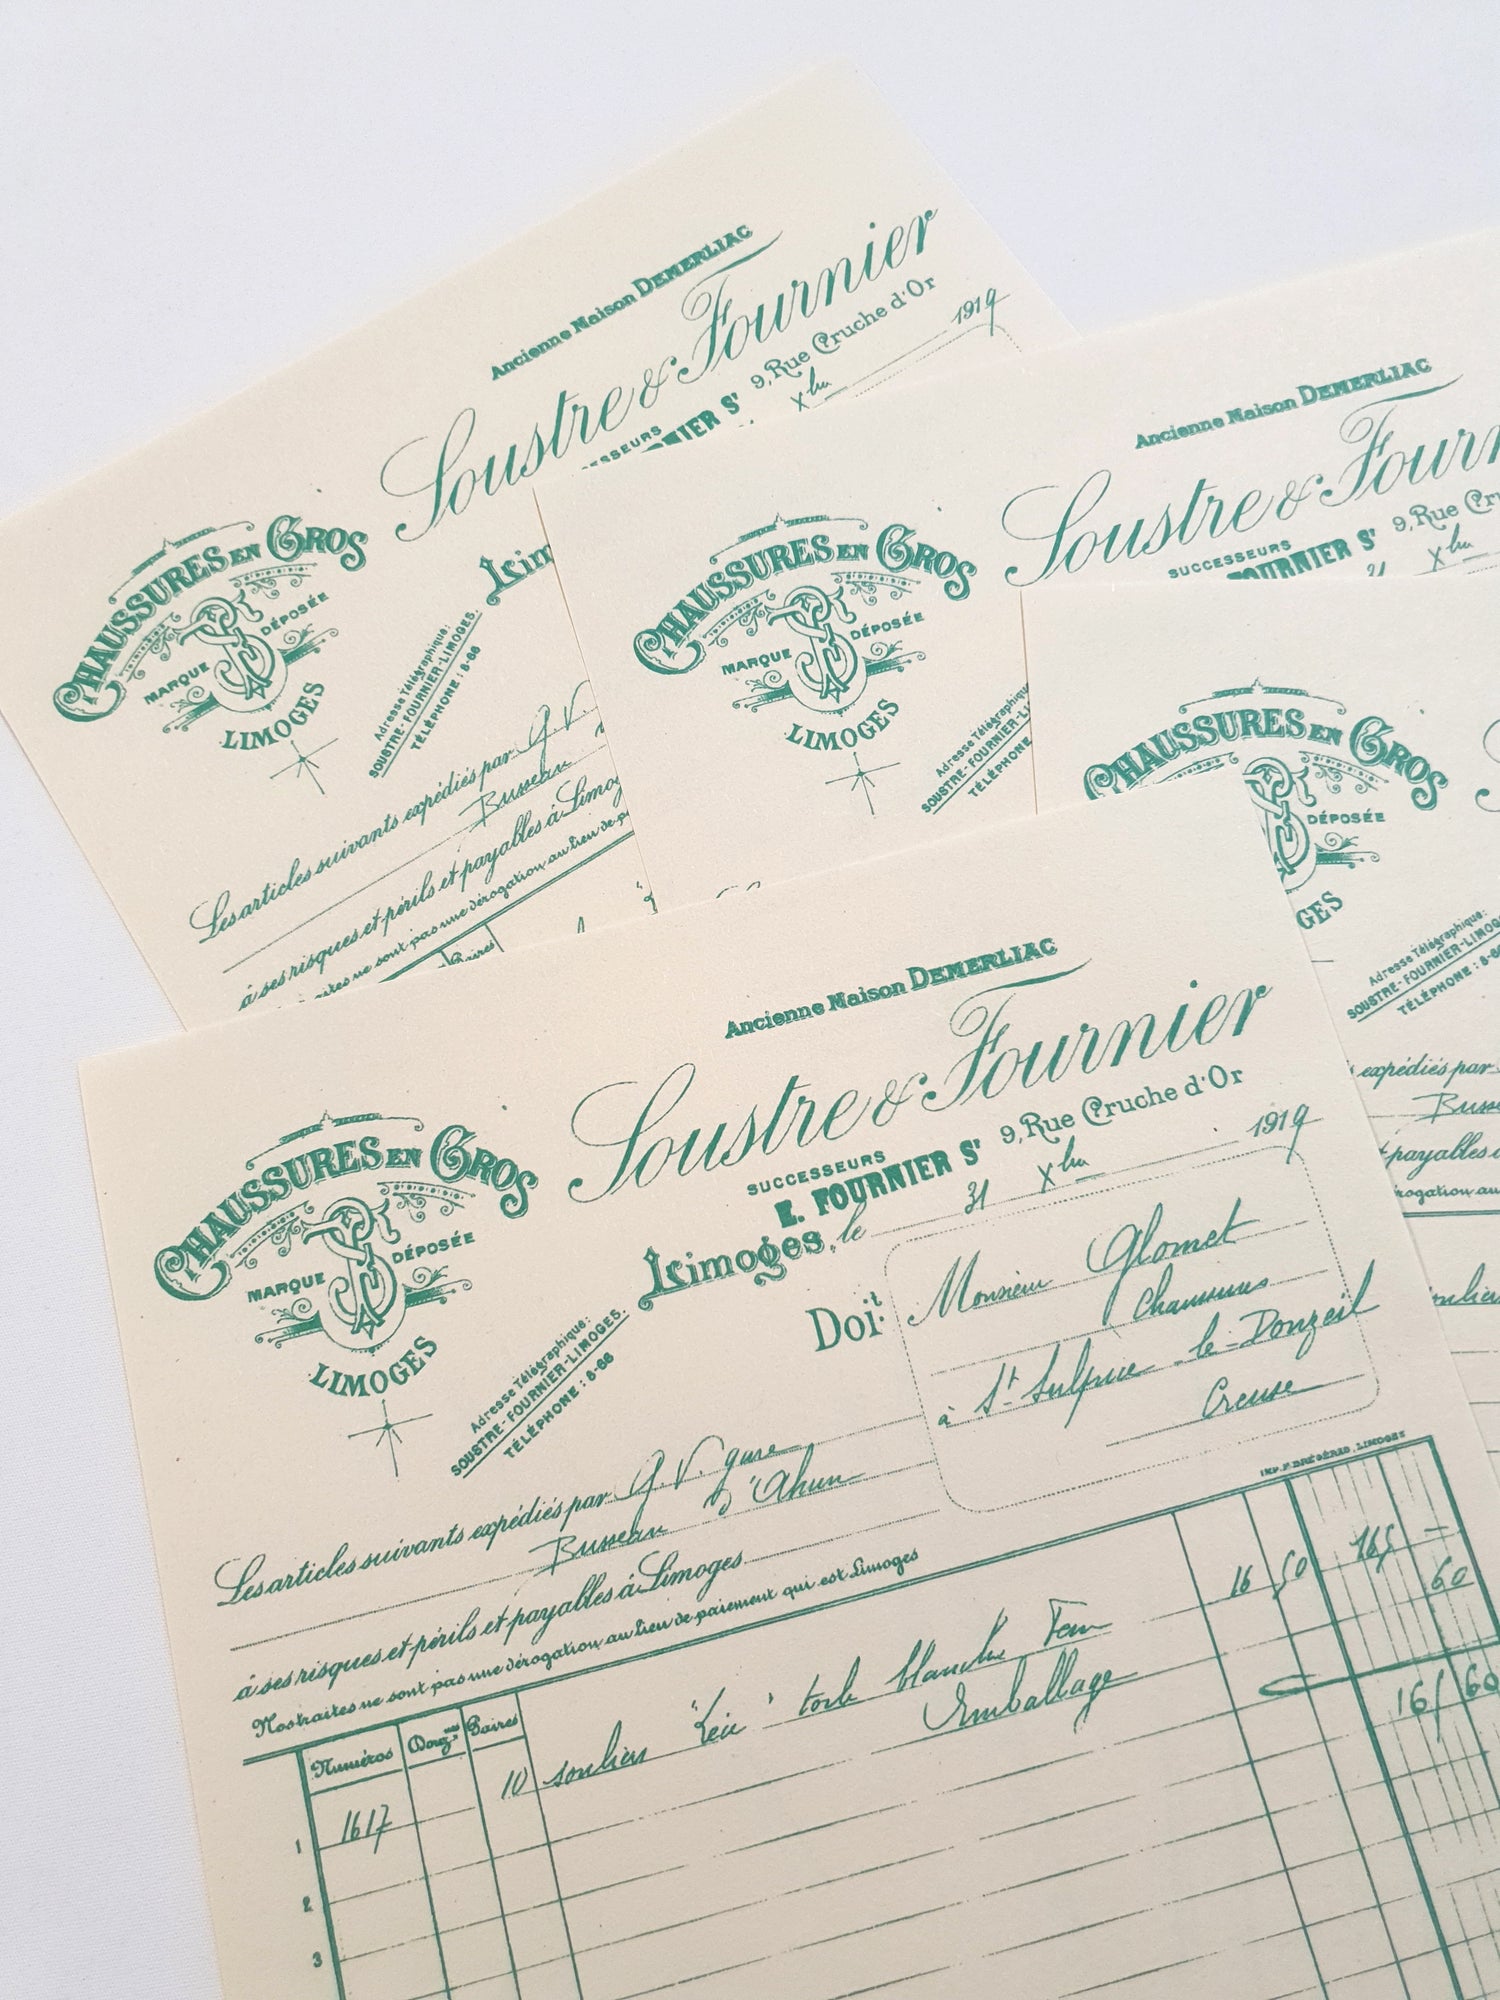 Ancienne Maison DEMERLIAC
Soustre & Fournier
SUCCESSEURS
9, Rue Cruche d'Or
NIER Sʳ
Xbre
1919
CHAUSSURES EN GROS
MARQUE DÉPOSÉE
LIMOGES
Lim
Adresse Télégraphique:
SOUSTRE-FOURNIER-LIMOGES.
TÉLÉPHONE : 8-66
Les articles suivants expédiés par G.V.
Busseau
à ses risques et périls et payables à Limog
ites ne sont pas une dérogation au lieu de p
Paires
Ancienne Maison DEMERLIAC
Soustre & Fourn
SUCCESSEURS
9, Rue Cru
FOURNIER Sʳ
31 Xbre
CHAUSSURES EN GROS
MARQUE DÉPOSÉE
LIMOGES
Adresse Télégraphique:
SOUSTRE-FOURNIER-L
TÉLÉPHONE
CHAUSSURES EN GROS
DÉPOSÉE
GES
Adresse Télégraphique:
SOUSTRE-FOURNIER-LIMOG
TÉLÉPHONE : 8-66
expédiés par
Buss
t payables à
rogation au
Ancienne Maison DEMERLIAC
Soustre & Fournier
SUCCESSEURS
9, Rue Cruche d'Or
E. FOURNIER Sʳ
Limoges, le 31 Xbre 1919
CHAUSSURES EN GROS
MARQUE DÉPOSÉE
LIMOGES
Adresse Télégraphique:
SOUSTRE-FOURNIER-LIMOGES.
TÉLÉPHONE : 8-66
Doit
Monsieur Glomet
Chaussures
à St Sulpice-le-Donzeil
Creuse
Les articles suivants expédiés par G.V. gare
Busseau d'Ahun
à ses risques et périls et payables à Limoges
Nos traites ne sont pas une dérogation au lieu de paiement qui est Limoges
IMP. P. DRÉGÉRIE, LIMOGES
Numéros Douz.nes Paires
1 1617 10 souliers toile blanche Fem 16 50 165 —
Emballage 60
2
3